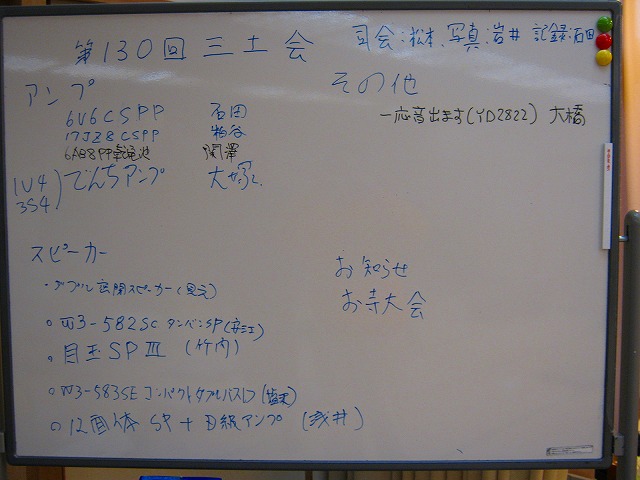 第130回 三土会
司会:松本、写真:岩井 記録:石田
アンプ
6V6CSPP 石田
17JZ8CSPP 粕谷
6AB8PP 関澤
1U4
3S4 でんちアンプ 大塚
その他
一応音出ます(YD2822) 大橋
スピーカー
・ダブル 開スピーカー
○W3-582SC タンバンSP(安江)
○目玉SPⅢ (竹内)
○W3-583SE コンパクトダブルバスレフ
○12面体SP+D級アンプ (浅井)
お知らせ
お寺大会